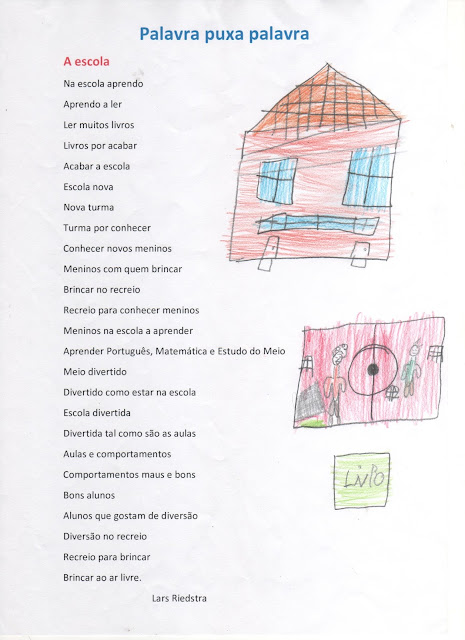 Palavra puxa palavra
A escola
Na escola aprendo
Aprendo a ler
Ler muitos livros
Livros por acabar
Acabar a escola
Escola nova
Nova turma
Turma por conhecer
Conhecer novos meninos
Meninos com quem brincar
Brincar no recreio
Recreio para conhecer meninos
Meninos na escola a aprender
Aprender Português, Matemática e Estudo do Meio
Meio divertido
Divertido como estar na escola
Escola divertida
Divertida tal como são as aulas
Aulas e comportamentos
Comportamentos maus e bons
Bons alunos
Alunos que gostam de diversão
Diversão no recreio
Recreio para brincar
Brincar ao ar livre.
Lars Riedstra
LivRo